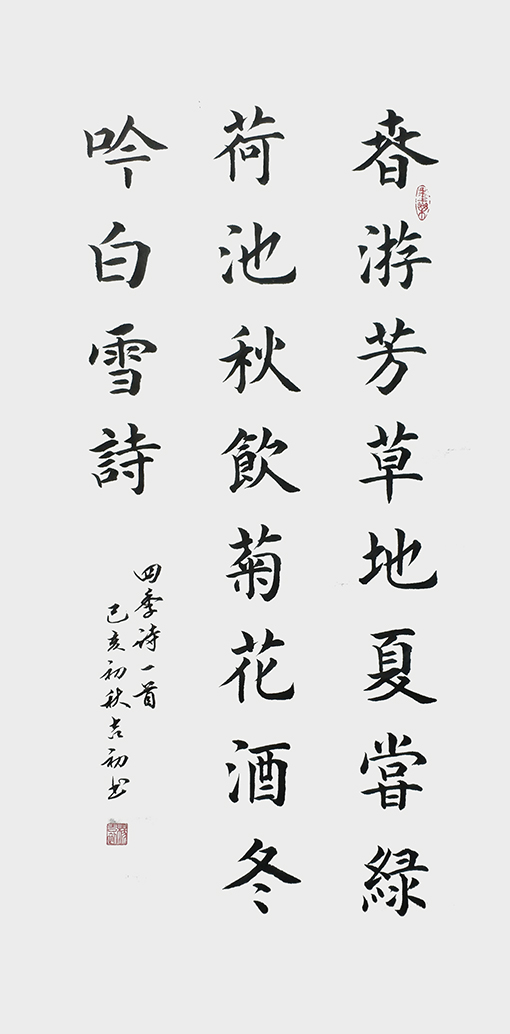 春游芳草地夏嘗緑
荷池秋飲菊花酒冬
吟白雪詩
四季诗一首
己亥初秋吉初书